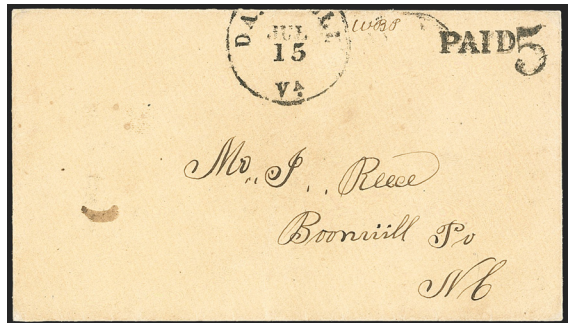 JUL
15
VA
PAID 5
Mr. J. Reece
Boonvill Po
NC